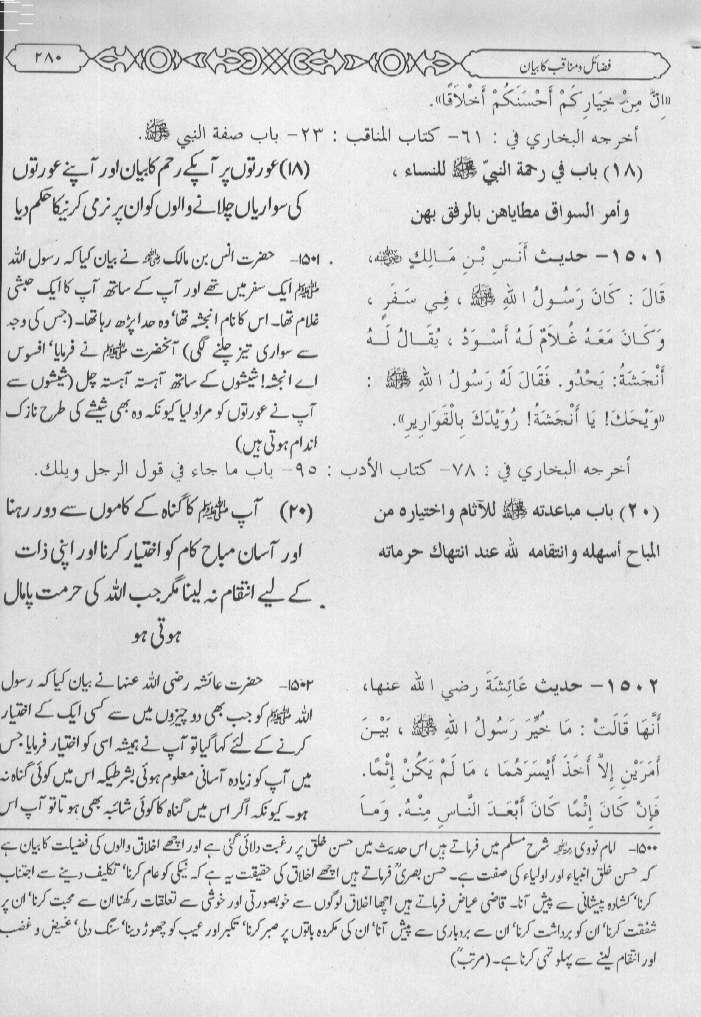 فضائل و مناقب کا بیان
۲۸۰
«إِنَّ مِنْ خِيَارِكُمْ أَحْسَنَكُمْ أَخْلَاقًا».
أخرجه البخاري في : ٦١- كتاب المناقب : ٢٣- باب صفة النبي ﷺ.
(١٨) باب في رحمة النبيّ ﷺ للنساء ،
وأمر السواق مطاياهن بالرفق بهن
١٥٠١- حديث أَنَسِ بْنِ مَالِكٍ ؓ،
قَالَ : كَانَ رَسُولُ اللهِ ﷺ ، فِي سَفَرٍ ،
وَكَانَ مَعَهُ غُلَامٌ لَهُ أَسْوَدُ ، يُقَالُ لَهُ
أَنْجَشَةُ: يَحْدُو. فَقَالَ لَهُ رَسُولُ اللهِ ﷺ :
«وَيْحَكَ! يَا أَنْجَشَةُ! رُوَيْدَكَ بِالْقَوَارِيرِ».
(۱۸) عورتوں پر آپکے رحم کا بیان اور آپنے عورتوں
کی سواریاں چلانے والوں کو ان پر نرمی کرنیکا حکم دیا
۱۵۰۱- حضرت انس بن مالک ؓ نے بیان کیا کہ رسول اللہ
ﷺ ایک سفر میں تھے اور آپ کے ساتھ آپ کا ایک حبشی
غلام تھا۔ اس کا نام انجشہ تھا‘ وہ حدا پڑھ رہا تھا۔ (جس کی وجہ
سے سواری تیز چلنے لگی) آنحضرت ﷺ نے فرمایا‘ افسوس
اے انجشہ! شیشوں کے ساتھ آہستہ آہستہ چل (شیشوں سے
آپ نے عورتوں کو مراد لیا کیونکہ وہ بھی شیشے کی طرح نازک
اندام ہوتی ہیں)
أخرجه البخاري في : ٧٨- كتاب الأدب : ٩٥- باب ما جاء في قول الرجل ويلك.
(٢٠) باب مباعدته ﷺ للآثام واختياره من
المباح أسهله وانتقامه لله عند انتهاك حرماته
(۲۰) آپ ﷺ کا گناہ کے کاموں سے دور رہنا
اور آسان مباح کام کو اختیار کرنا اور اپنی ذات
کے لیے انتقام نہ لینا مگر جب اللہ کی حرمت پامال
ہوتی ہو
١٥٠٢- حديث عَائِشَةَ رضي الله عنها،
أَنَّهَا قَالَتْ : مَا خُيِّرَ رَسُولُ اللهِ ﷺ ، بَيْنَ
أَمْرَيْنِ إِلاَّ أَخَذَ أَيْسَرَهُمَا ، مَا لَمْ يَكُنْ إِثْمًا.
فَإِنْ كَانَ إِثْمًا كَانَ أَبْعَدَ النَّاسِ مِنْهُ. وَمَا
۱۵۰۲- حضرت عائشہ رضی اللہ عنہا نے بیان کیا کہ رسول
اللہ ﷺ کو جب بھی دو چیزوں میں سے کسی ایک کے اختیار
کرنے کے لئے کہا گیا تو آپ نے ہمیشہ اسی کو اختیار فرمایا جس
میں آپ کو زیادہ آسانی معلوم ہوئی بشرطیکہ اس میں کوئی گناہ نہ
ہو۔ کیونکہ اگر اس میں گناہ کا کوئی شائبہ بھی ہوتا تو آپ اس
۱۵۰۰- امام نووی ؒ شرح مسلم میں فرماتے ہیں اس حدیث میں حسن خلق پر رغبت دلائی گئی ہے اور اچھے اخلاق والوں کی فضیلت کا بیان ہے
کہ حسن خلق انبیاء اور اولیاء کی صفت ہے۔ حسن بصریؒ فرماتے ہیں اچھے اخلاق کی حقیقت یہ ہے کہ نیکی کو عام کرنا‘ تکلیف دینے سے اجتناب
کرنا‘ کشادہ پیشانی سے پیش آنا۔ قاضی عیاض فرماتے ہیں اچھا اخلاق لوگوں سے خوبصورتی اور خوشی سے تعلقات رکھنا ان سے محبت کرنا‘ ان پر
شفقت کرنا‘ ان کو برداشت کرنا‘ ان سے بردباری سے پیش آنا‘ ان کی مکروہ باتوں پر صبر کرنا‘ تکبر اور عیب کو چھوڑ دینا‘ سنگ دلی‘ غیض و غضب
اور انتقام لینے سے پہلو تہی کرنا ہے۔ (مرتبؒ)